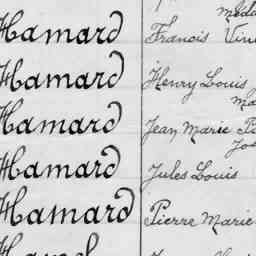 Hamard Francis
Hamard Henry Louis
Hamard Jean Marie
Hamard Jules Louis
Hamard Pierre Marie